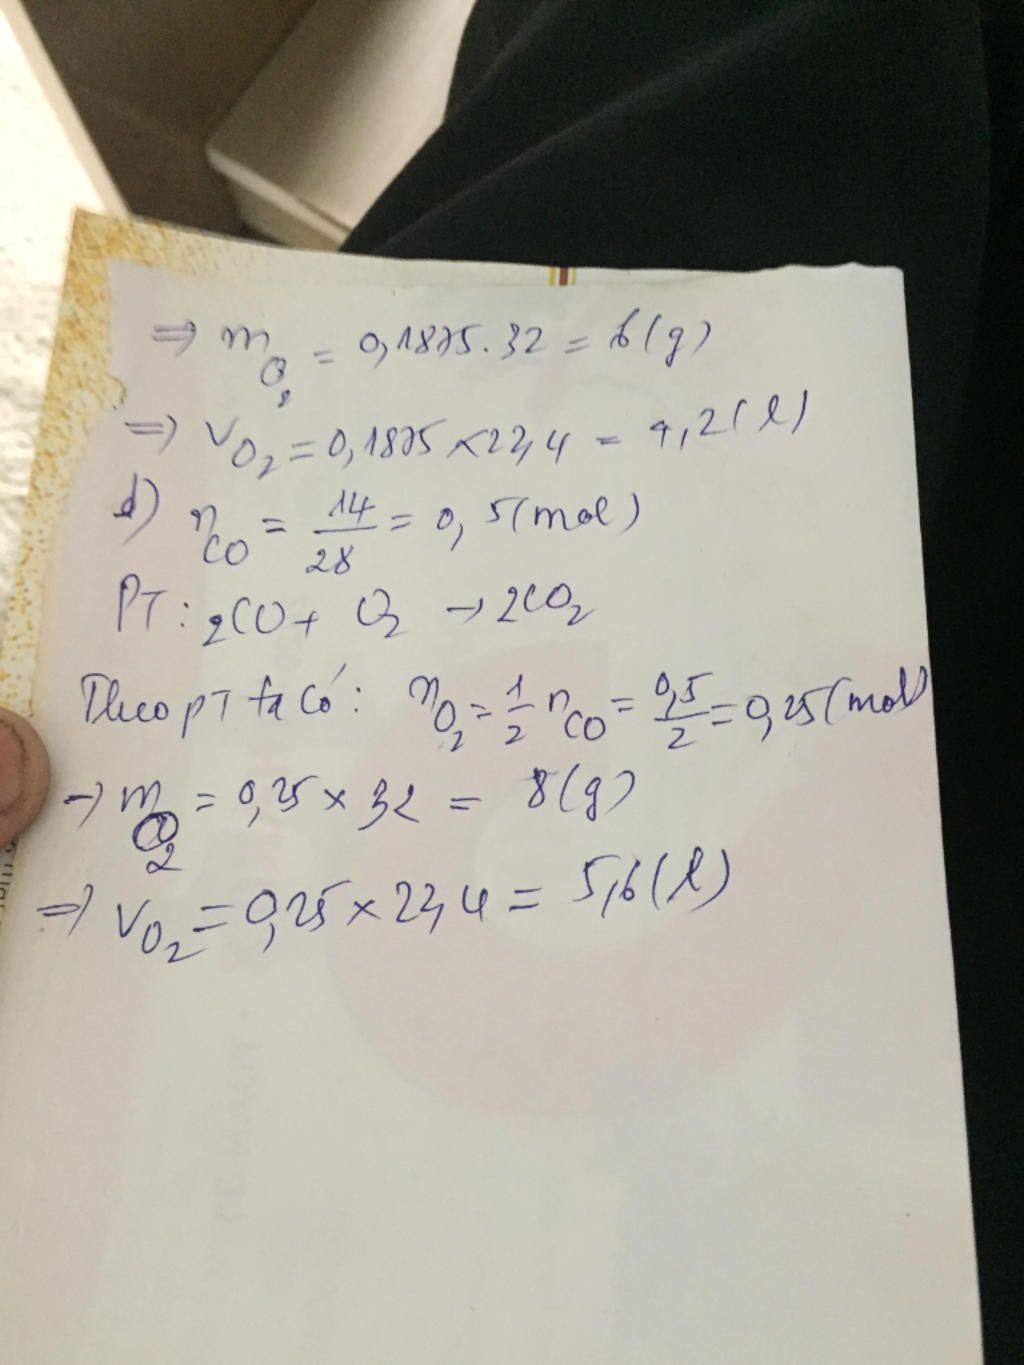 => m O2 = 0,1875.32 = 6(g)
=> V O2 = 0,1875 × 22,4 = 4,2(l)
d) n CO = 14/28 = 0,5(mol)
PT: 2CO + O2 → 2CO2
Theo pT ta có: n O2 = 1/2 n CO = 0,5/2 = 0,25(mol)
→ m O2 = 0,25 × 32 = 8(g)
=> V O2 = 0,25 × 22,4 = 5,6(l)